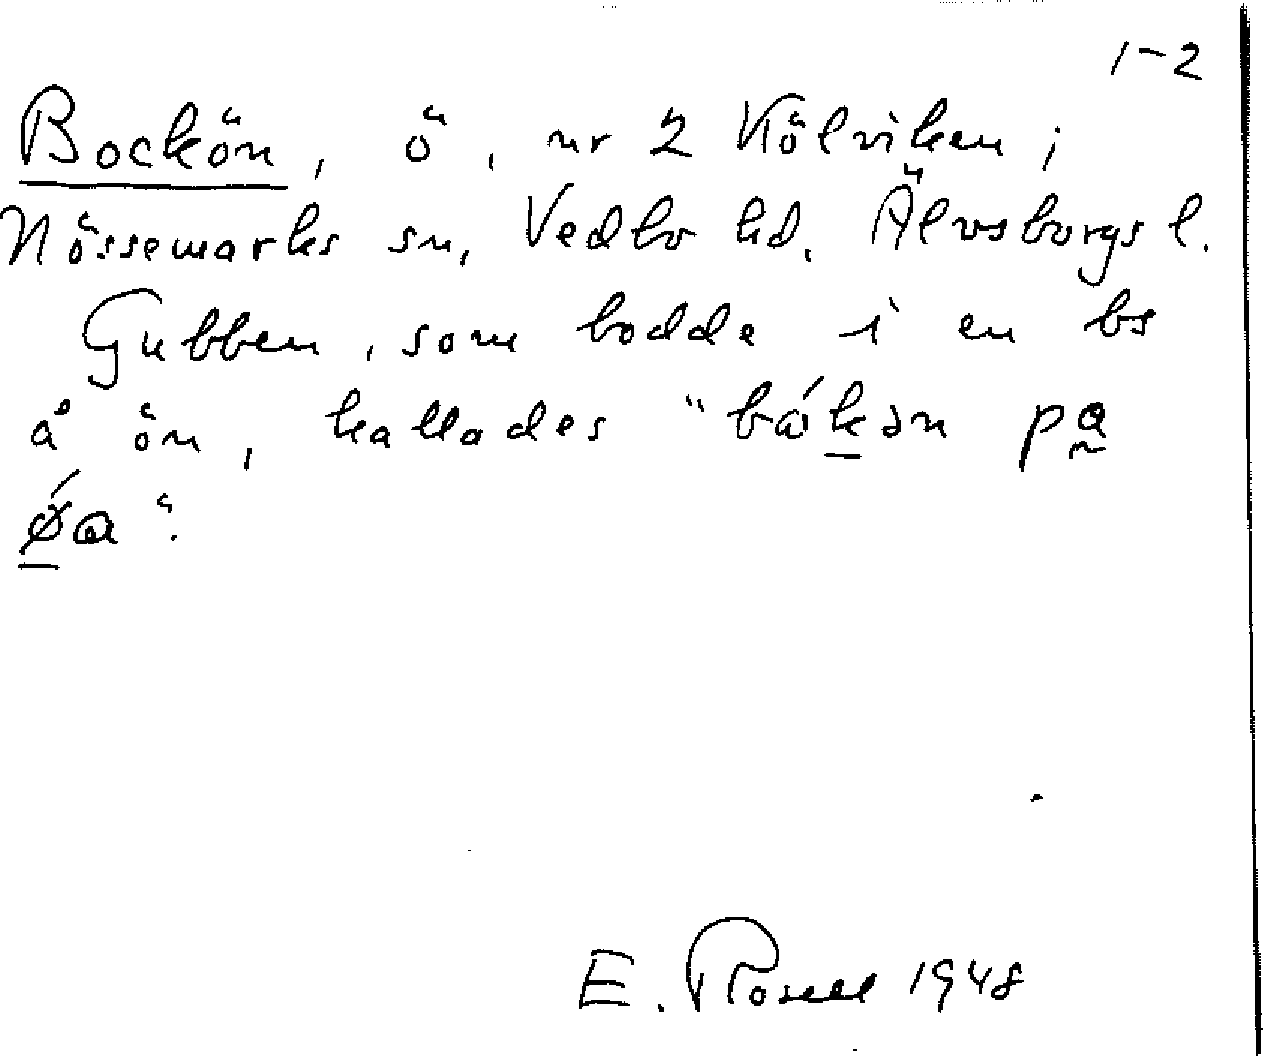 1-2
Bockön, ö, nr 2 Kölviken i
Nössemarks sn, Vedbo hd. Älvsborgs l.
Gubben, som bodde i en bs
å ön, kallades "bɷ́kən pa
ǿa".
E. Rosell 1948